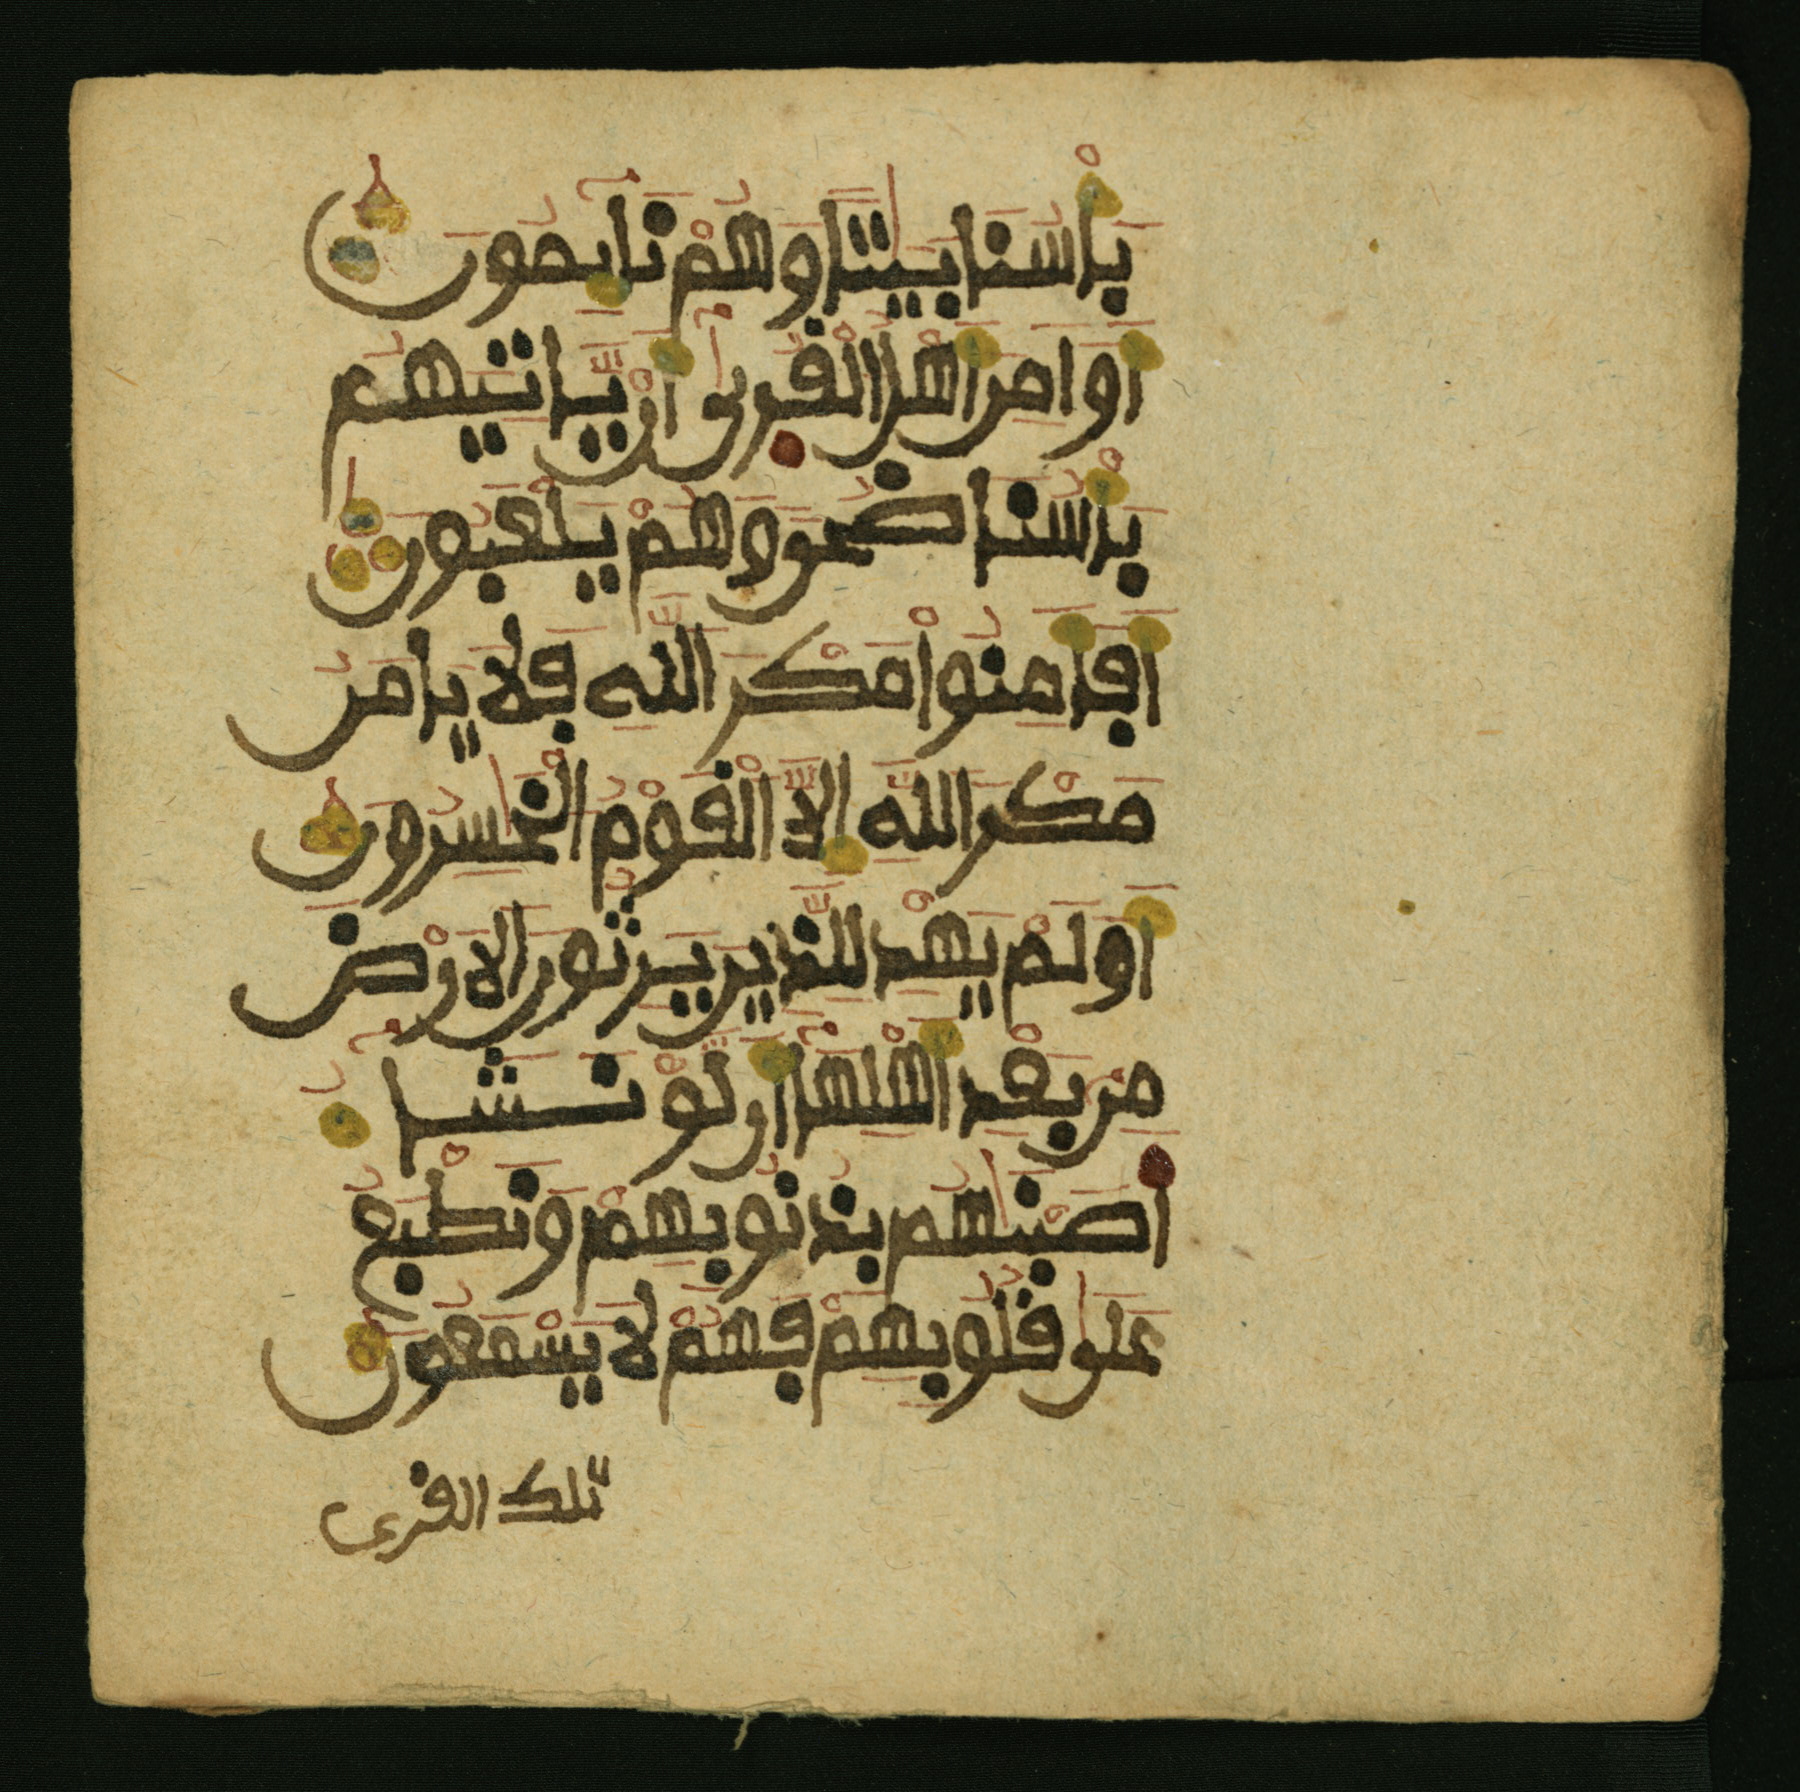 بَأْسُنَا بَيَٰتًا وَهُمْ نَآئِمُونَ
أَوَامِنَ أَهْلُ الْقُرَىٰٓ أَنْ يَّاتِيَهُم
بَأْسُنَا ضُحًى وَهُمْ يَلْعَبُونَ
أَفَأَمِنُواْ مَكْرَ اللَّهِ فَلَا يَامَنُ
مَكْرَ اللَّهِ إِلَّا الْقَوْمُ الْخَٰسِرُونَ
أَوَلَمْ يَهْدِ لِلَّذِينَ يَرِثُونَ الَارْضَ
مِنۢ بَعْدِ أَهْلِهَآ أَن لَّوْ نَشَآءُ
أَصَبْنَٰهُم بِذُنُوبِهِمْ وَنَطْبَعُ
عَلَىٰ قُلُوبِهِمْ فَهُمْ لَا يَسْمَعُونَ
تلك القرى